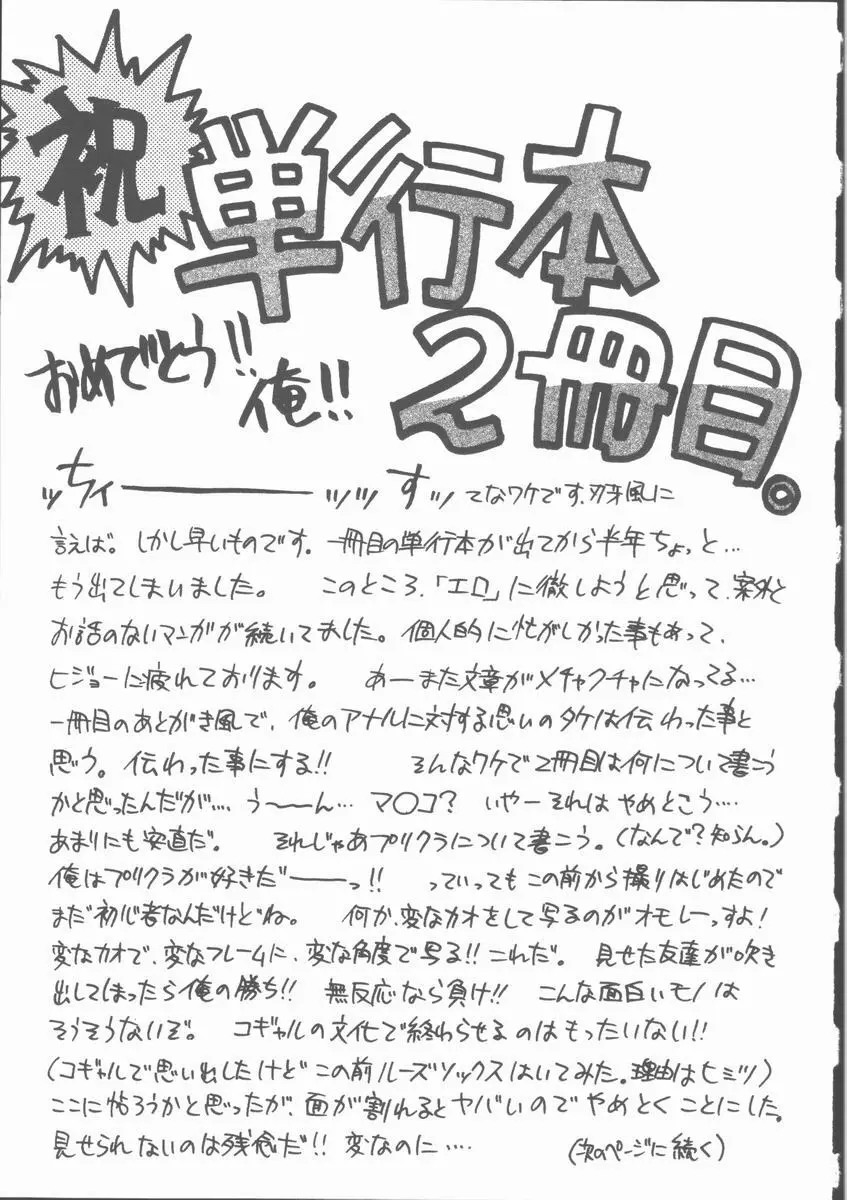 祝
単行本
2冊目。
おめでとう!!
俺!!
ッちィーーーーッッッすッ てなワケです、刃牙風に
言えば。しかし早いものです。一冊目の単行本が出てから半年ちょっと…
もう出てしまいました。 このところ、「エロ」に徹しようと思って、案外と
お話のないマンガが続いてました。個人的に忙がしかった事もあって、
ヒジョーに疲れております。 あーまた文章がメチャクチャになってる…
一冊目のあとがき風で、俺のアナルに対する思いのタケは伝わった事と
思う。伝わった事にする!! そんなワケで2冊目は何について書こう
かと思ったんだが…、う〜〜ん… マ○コ? いやーそれはやめとこう…、
あまりにも安直だ。 それじゃあプリクラについて書こう。(なんで?知らん。)
俺はプリクラが好きだーーっ!! っていってもこの前から撮りはじめたので
まだ初心者なんだけどね。 何か、変なカオをして写るのがオモレーっすよ!
変なカオで、変なフレームに、変な角度で写る!!これだ。 見せた友達が吹き
出してしまったら俺の勝ち!! 無反応なら負け!! こんな面白いモノは
そうそうないぞ。 コギャルの文化で終わらせるのはもったいない!!
(コギャルで思い出したけどこの前ルーズソックスはいてみた。理由はヒミツ)
ここに帖ろうかと思ったが、面が割れるとヤバいのでやめとくことにした。
見せられないのは残念だ!! 変なのに…. (次のページに続く)